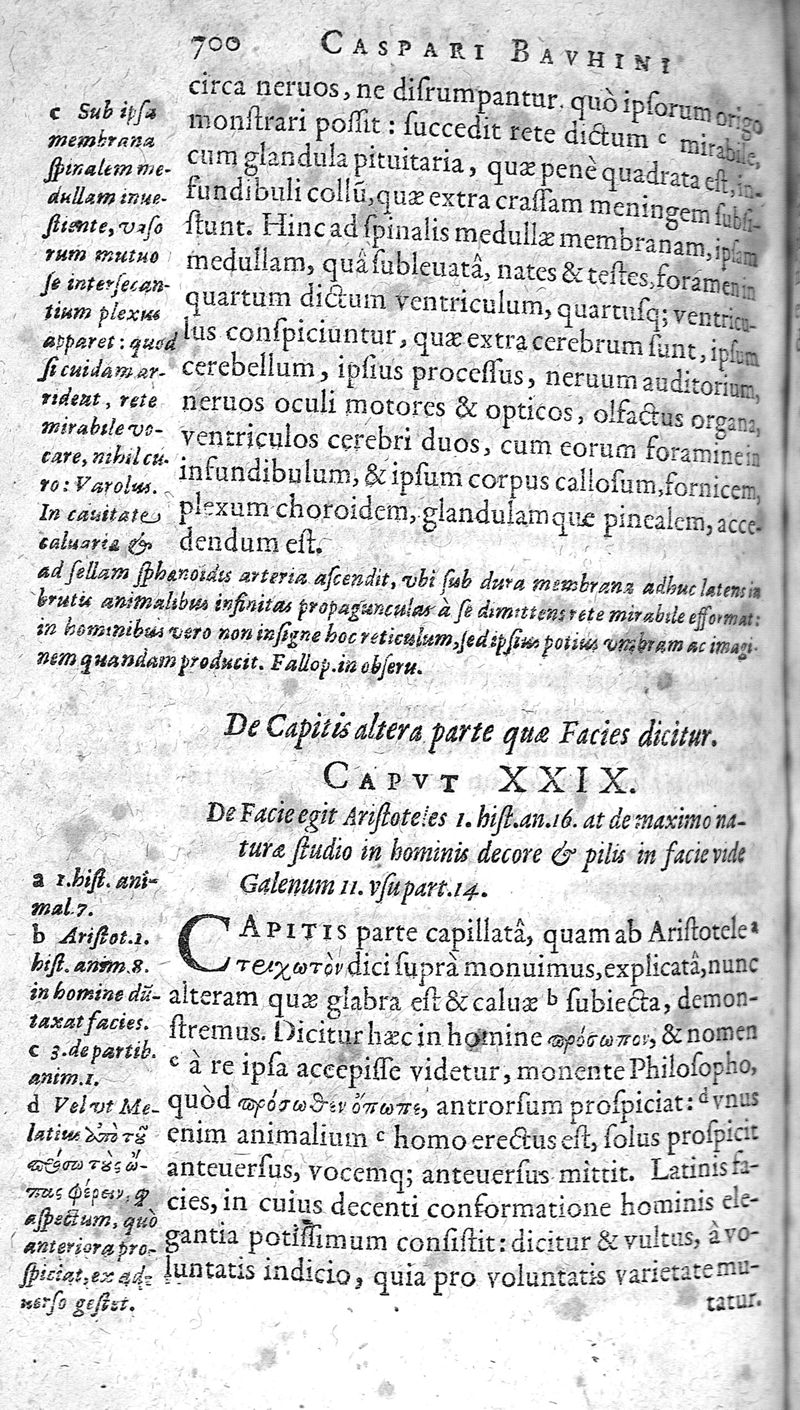 700 CASPARI BAVHINI
circa neruos, ne disrumpantur. quò ipsorum origo
monstrari possit: succedit rete dictum c mirabile,
cum glandula pituitaria, quæ penè quadrata est, in-
fundibuli collũ, quæ extra crassam meningem subsi-
stunt. Hinc ad spinalis medullæ membranam, ipsam
medullam, quâ subleuatâ, nates & testes, foramen in
quartum dictum ventriculum, quartusq; ventricu-
lus conspiciuntur, quæ extra cerebrum sunt, ipsum
cerebellum, ipsius processus, neruum auditorium,
neruos oculi motores & opticos, olfactus organa,
ventriculos cerebri duos, cum eorum foramine in
infundibulum, & ipsum corpus callosum, fornicem,
plexum choroidem, glandulamque pinealem, acce-
dendum est.
c Sub ipsa
membrana
spinalem me-
dullam inue-
stiente, vaso
rum mutuo
se intersecan-
tium plexus
apparet: quod
si cuidam ar-
rideat, rete
mirabile vo-
care, nihil cu-
ro: Varolus.
In cauitate
caluaria &
ad sellam sphenoidis arteria ascendit, vbi sub dura membrana adhuc latens in
brutis animalibus infinitas propagunculas à se dimittens rete mirabile efformat:
in hominibus vero non insigne hoc reticulum, sed ipsius potius vmbram ac imagi-
nem quandam producit. Fallop. in obseru.
De Capitis altera parte quæ Facies dicitur.
CAPVT XXIX.
De Facie egit Aristoteles 1. hist. an. 16. at de maximo na-
turæ studio in hominis decore & pilis in facie vide
Galenum 11. vsu part. 14.
CAPITIS parte capillatâ, quam ab Aristotele a
τειχωτὸν dici suprà monuimus, explicatâ, nunc
alteram quæ glabra est & caluæ b subiecta, demon-
stremus. Dicitur hæc in homine πρόσωπον, & nomen
c à re ipsa accepisse videtur, monente Philosopho,
quòd πρόσωθεν ὄπωπε, antrorsum prospiciat: d vnus
enim animalium c homo erectus est, solus prospicit
anteuersus, vocemq; anteuersus mittit. Latinis fa-
cies, in cuius decenti conformatione hominis ele-
gantia potissimum consistit: dicitur & vultus, à vo-
luntatis indicio, quia pro voluntatis varietate mu-
tatur.
a 1. hist. ani-
mal. 7.
b Aristot. 1.
hist. anim. 8.
in homine dũ-
taxat facies.
c 3. de partib.
anim. 1.
d Vel vt Me-
latius ἀπὸ τοῦ
πρόσω τοὺς ὦ-
πας φέρειν,
aspectum, quò
anteriora pro-
spiciat, ex ad-
uerso gestet.